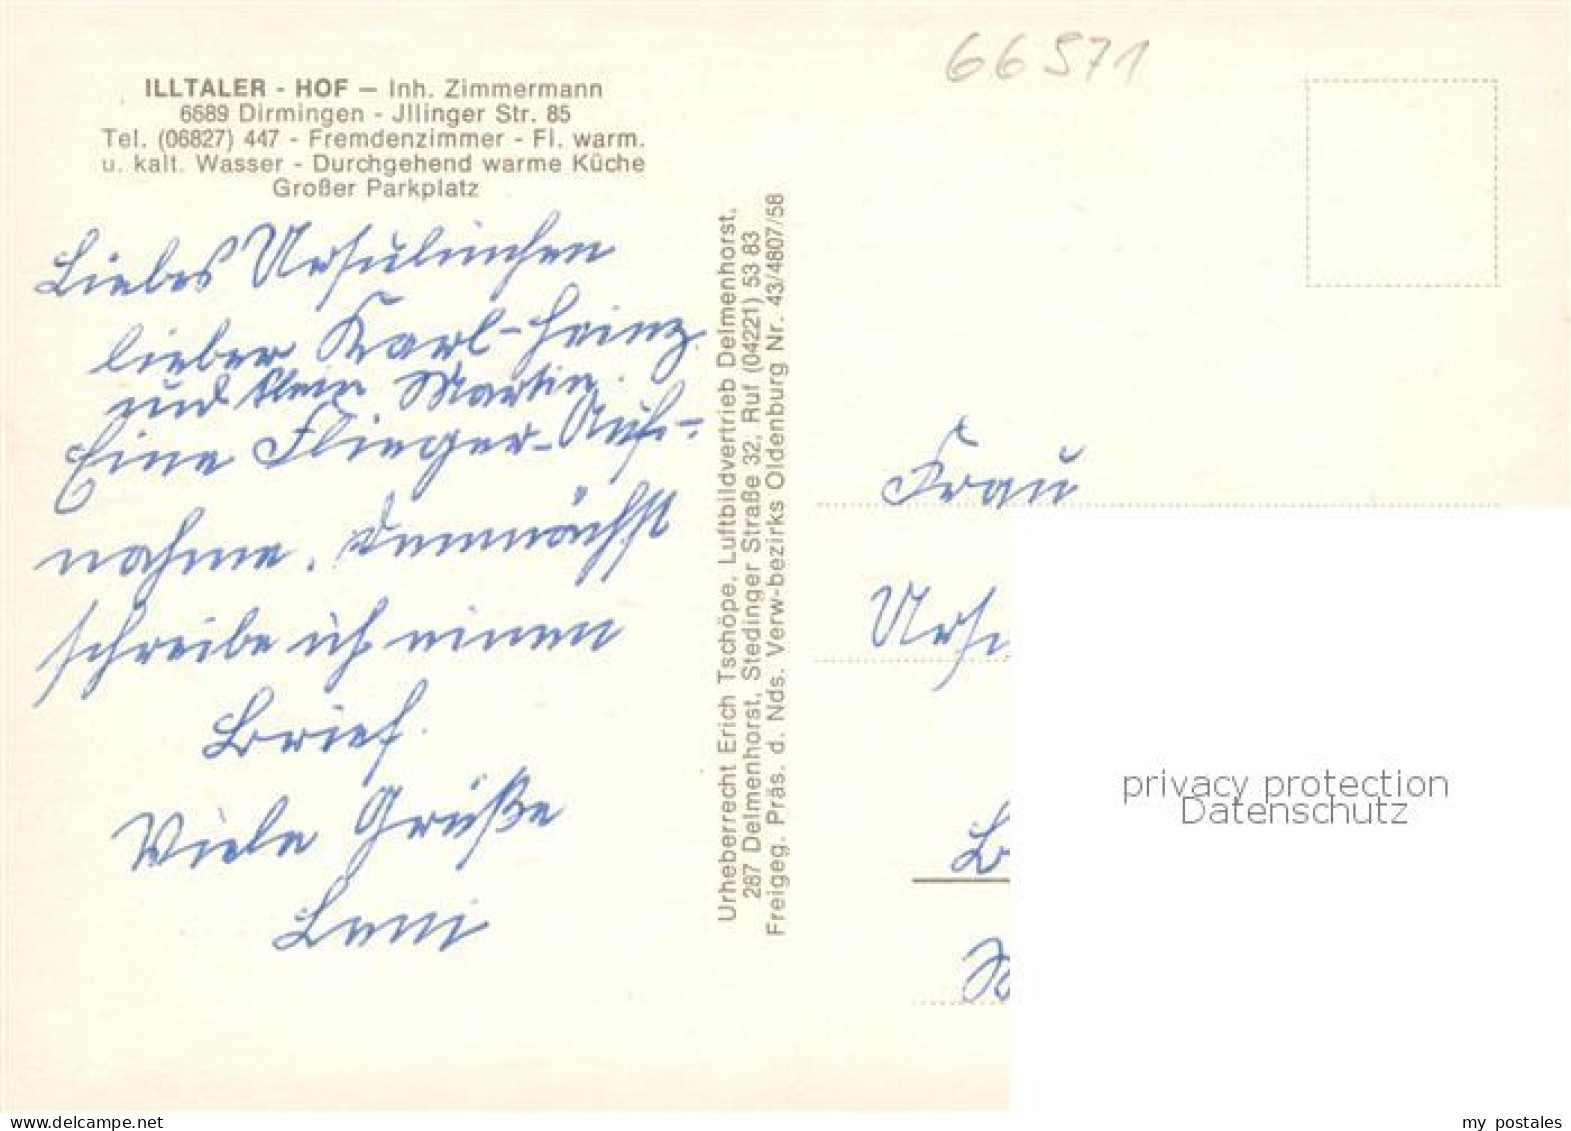 66571
ILLTALER - HOF — Inh. Zimmermann
6689 Dirmingen - Jllinger Str. 85
Tel. (06827) 447 - Fremdenzimmer - Fl. warm.
u. kalt. Wasser - Durchgehend warme Küche
Großer Parkplatz
Liebes Ursulinchen
lieber Karl-Heinz
und klein Martin.
Eine Flieger-Auf-
nahme. Demnächst
schreibe ich einen
Brief.
Viele Grüße
Leni
Urheberrecht Erich Tschöpe, Luftbildvertrieb Delmenhorst,
287 Delmenhorst, Stedinger Straße 32, Ruf (04221) 53 83
Freigeg. Präs. d. Nds. Verw-bezirks Oldenburg Nr. 43/4807/58
Frau
Urs
B
privacy protection
Datenschutz
delcampe.net
my_postales